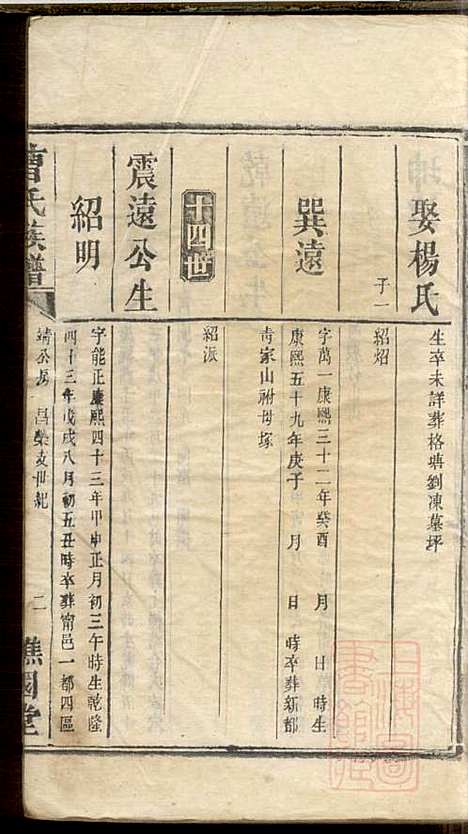 娶楊氏
生卒未詳葬格塘劉凍墓坪
子一
紹炤
巽遠
字萬一康熙三十二年癸酉 月 日 時生
康熙五十九年庚子 月 日 時卒葬新都
青家山祔母塚
紹派
十四世
震遠公生
紹明
字能正康熙四十三年甲申正月初三午時生乾隆
四十三年戊戌八月初五丑時卒葬甯邑一都四區
曹氏族譜
靖公房 昌榮支世紀
二
譙國堂